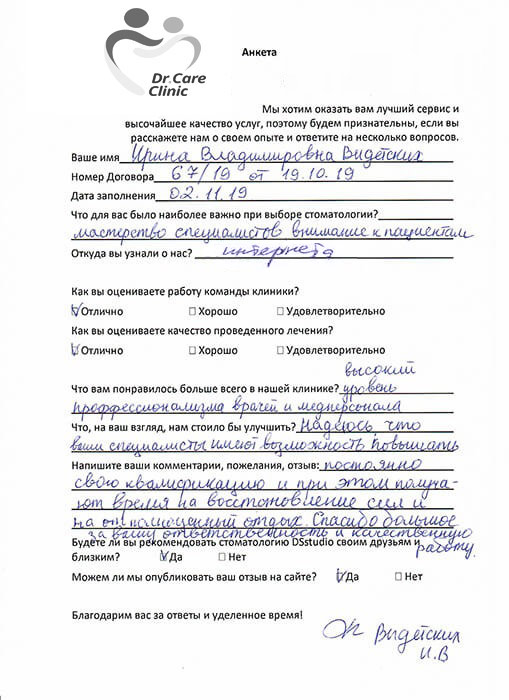 Dr.Care
Clinic
Анкета
Мы хотим оказать вам лучший сервис и
высочайшее качество услуг, поэтому будем признательны, если вы
расскажете нам о своем опыте и ответите на несколько вопросов.
Ваше имя Ирина Владимировна Видетских
Номер Договора 67/19 от 19.10.19
Дата заполнения 02.11.19
Что для вас было наиболее важно при выборе стоматологии?
мастерство специалистов внимание к пациентам
Откуда вы узнали о нас? интернета
Как вы оцениваете работу команды клиники?
Отлично Хорошо Удовлетворительно
Как вы оцениваете качество проведенного лечения?
Отлично Хорошо Удовлетворительно
высокий
Что вам понравилось больше всего в нашей клинике? уровень
проффессионализма врачей и медперсонала
Что, на ваш взгляд, нам стоило бы улучшить? Надеюсь, что
ваши специалисты имеют возможность повышать
Напишите ваши комментарии, пожелания, отзыв: постоянно
свою квалификацию и при этом получа-
ют время на восстановление сил и
отдых. Спасибо большое
за вашу ответственность и качественную
Будете ли вы рекомендовать стоматологию DSstudio своим друзьям и работу.
близким? Да Нет
Можем ли мы опубликовать ваш отзыв на сайте? Да Нет
Благодарим вас за ответы и уделенное время!
Видетских
И.В